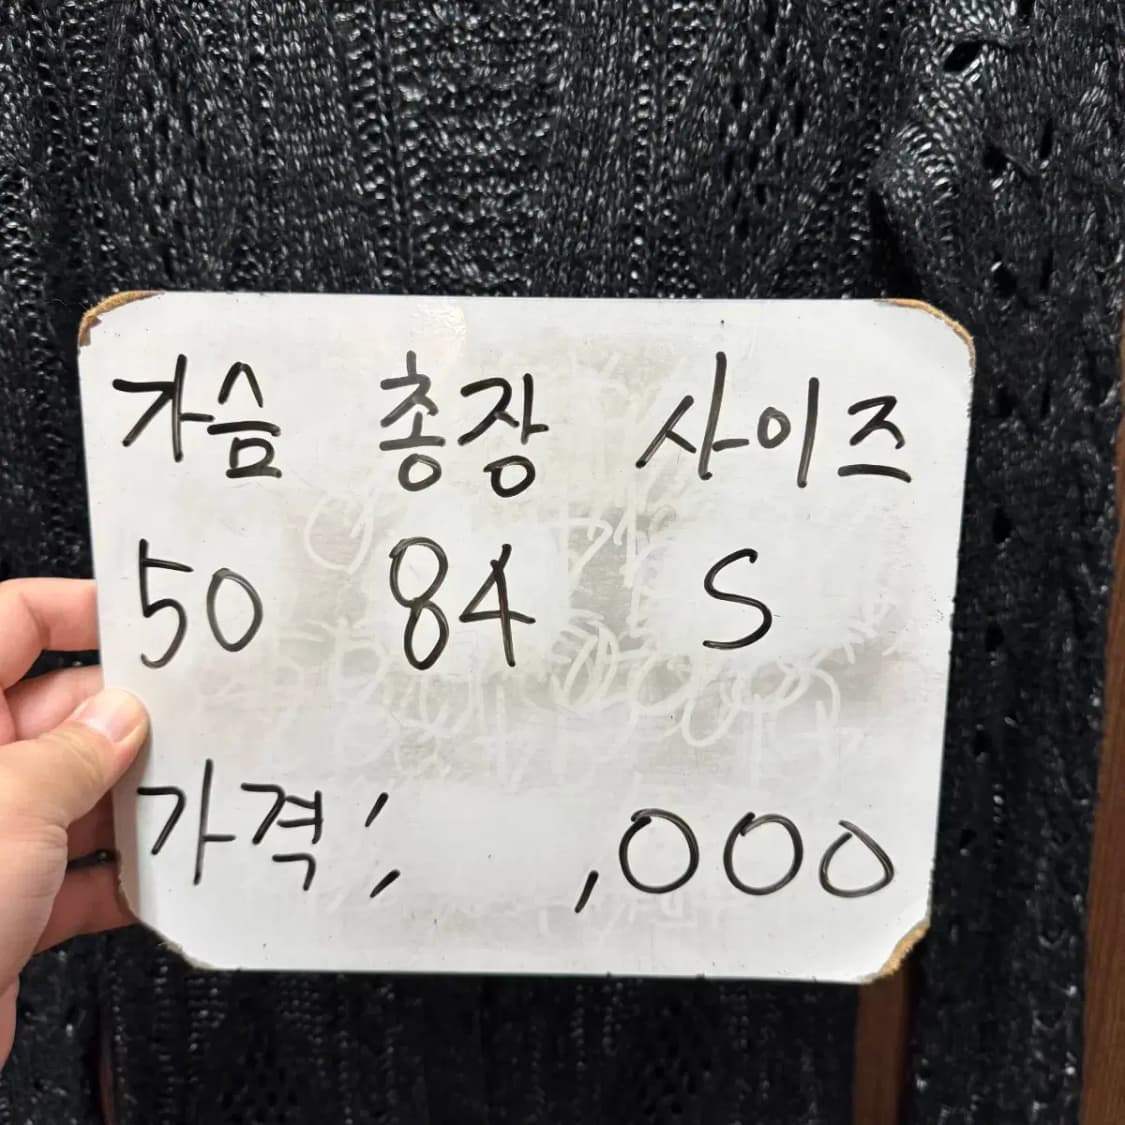 가슴 총장 사이즈
50 84 S
가격: ,000